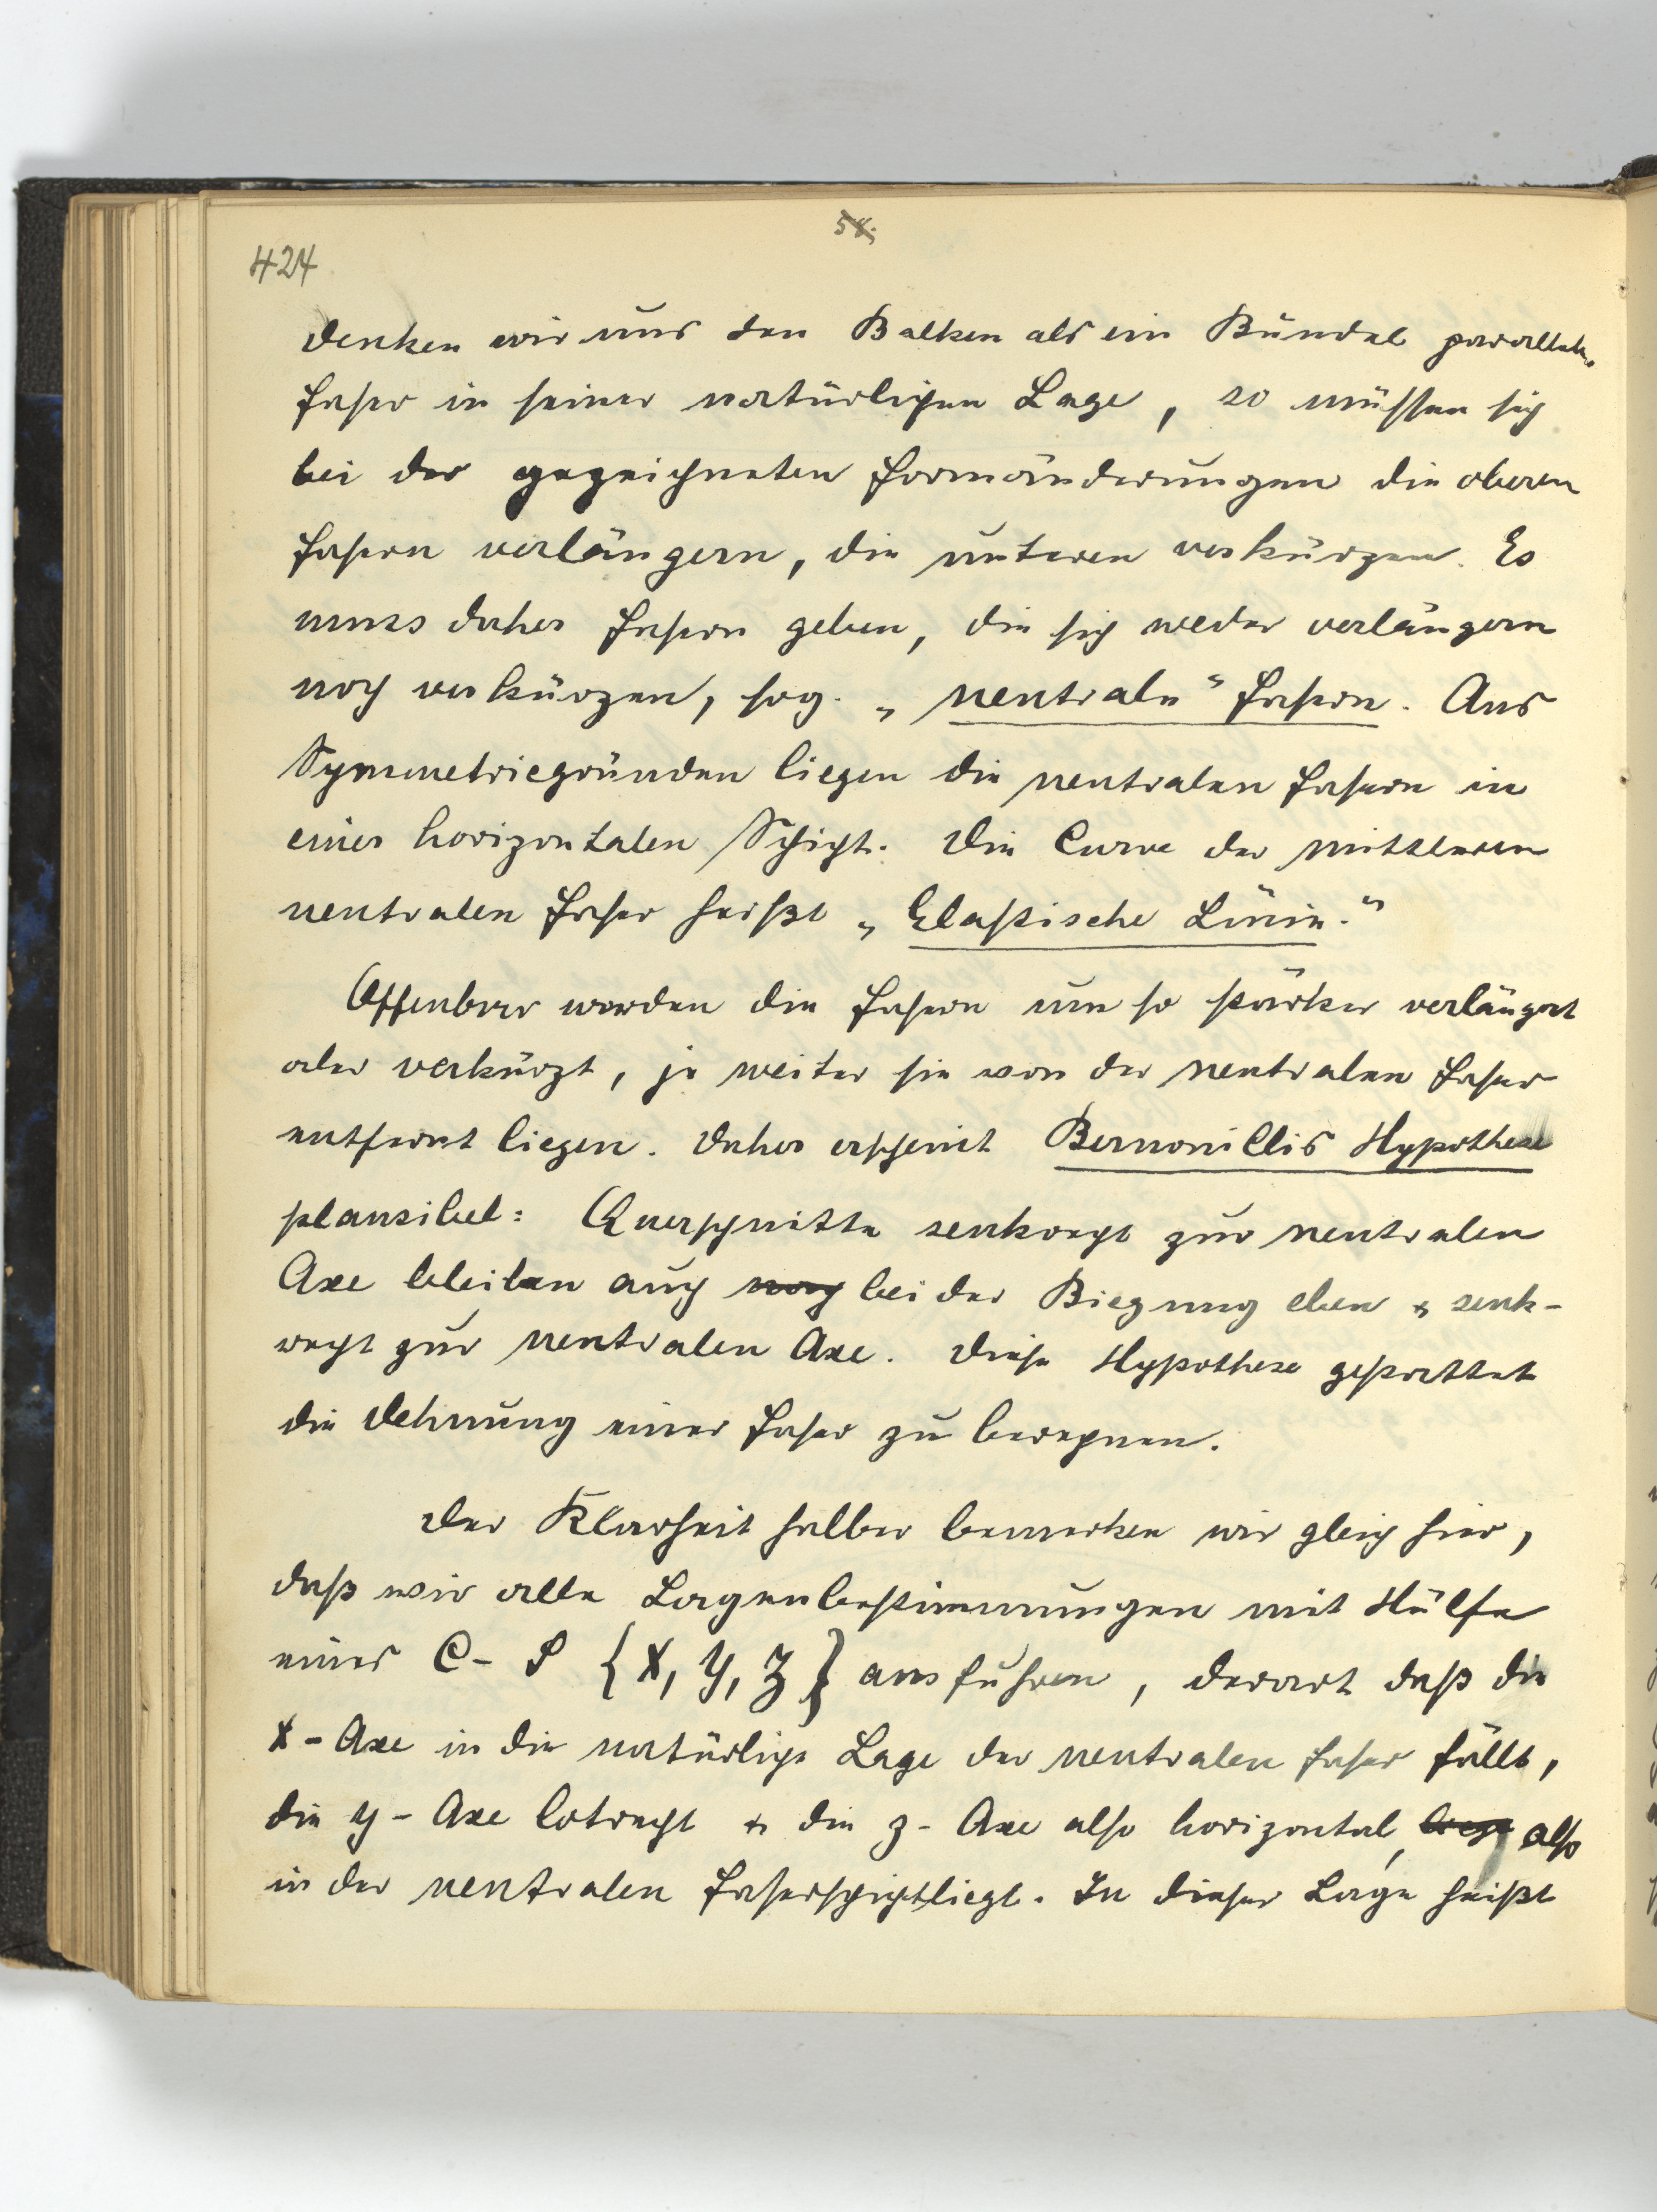 58.
424
Denken wir uns den Balken als ein Bündel paralleler
Faser in seiner natürlichen Lage, so müssen sich
bei der gezeichneten Formänderungen die oberen
Fasern verlängern, die unteren verkürzen. Es
muss daher Fasern geben, die sich weder verlängern
noch verkürzen, sog. „neutrale“ Fasern. Aus
Symmetriegründen liegen die neutralen Fasern in
einer horizontalen Schicht. Die Curve der mittleren
neutralen Faser heißt „Elastische Linie.“
Offenbar werden die Fasern um so stärker verlängert
oder verkürzt, je weiter sie von der neutralen Faser
entfernt liegen. Daher erscheint Bernouillis Hypothese
plausibel: Querschnitte senkrecht zur neutralen
Axe bleiben auch noch bei der Biegung eben & senk-
recht zur neutralen Axe. Diese Hypothese gestattet
die Dehnung einer Faser zu berechnen.
Der Klarheit halber bemerken wir gleich hier,
daß wir alle Lagenbestimmungen mit Hülfe
eines C-S {X, Y, Z} ausführen, derart daß die
X-Axe in die natürliche Lage der neutralen Faser fällt,
die y-Axe lotrecht & die z-Axe also horizontal, liegt also
in der neutralen Faserschicht liegt. In dieser Lage heißt